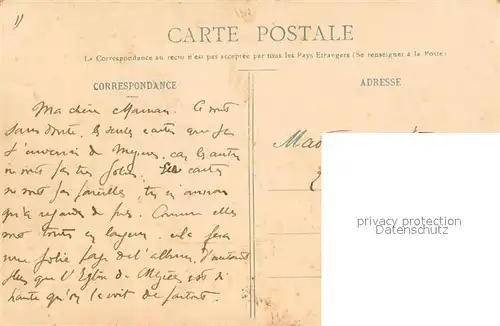 CARTE POSTALE
La Correspondance au recto n'est pas acceptée par tous les Pays Etrangers (Se renseigner à la Poste)
CORRESPONDANCE
ADRESSE
Ma chère Maman. Ce sont
sans doute, les seules cartes que je
t'enverrai de Mézières, car les autres
ne sont pas très jolies. cartes
ne sont pas pareilles, tu
qu'à regarder de près. Comme elles
sont toutes en largeur, cela fera
une jolie page de l'album. D'autant
plus que l'Eglise de Mézières est si
haute qu'on la voit de partout.
Mad
privacy protection